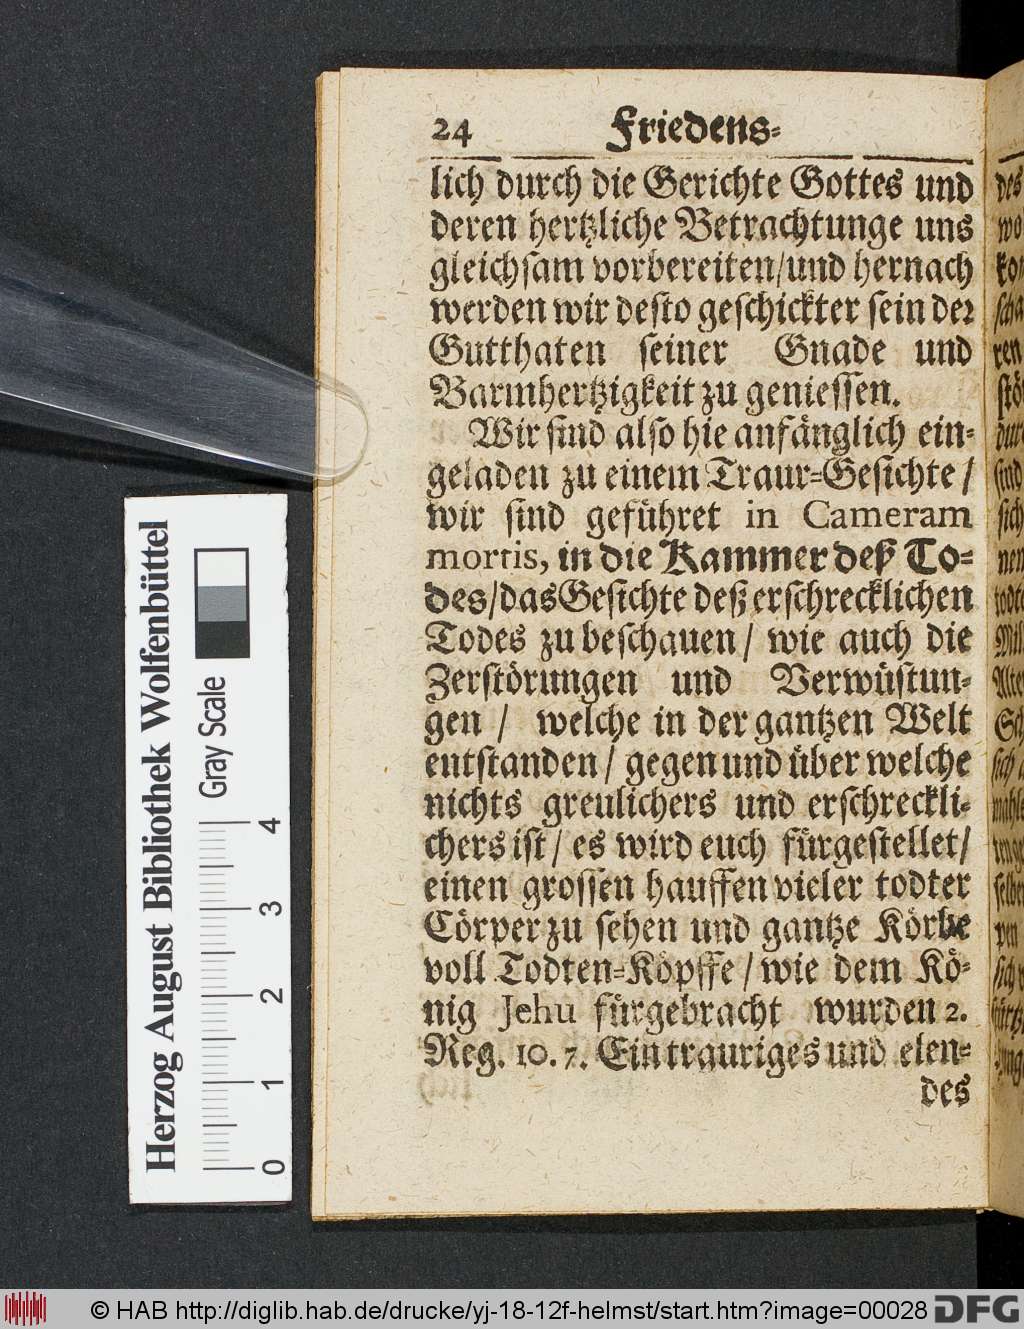 24 Friedens-
lich durch die Gerichte Gottes und
deren hertzliche Betrachtunge uns
gleichsam vorbereiten/und hernach
werden wir desto geschickter sein der
Gutthaten seiner Gnade und
Barmhertzigkeit zu geniessen.
Wir sind also hie anfänglich ein-
geladen zu einem Traur-Gesichte/
wir sind geführet in Cameram
mortis, in die Kammer deß To-
des/das Gesichte deß erschrecklichen
Todes zu beschauen/ wie auch die
Zerstörungen und Verwüstun-
gen / welche in der gantzen Welt
entstanden/ gegen und über welche
nichts greulichers und erschreckli-
chers ist/ es wird euch fürgestellet/
einen grossen hauffen vieler todter
Cörper zu sehen und gantze Körbe
voll Todten-Köpffe/ wie dem Kö-
nig Jehu fürgebracht wurden 2.
Reg. 10. 7. Ein trauriges und elen-
des
Herzog August Bibliothek Wolfenbüttel
Gray Scale
0 1 2 3 4
© HAB http://diglib.hab.de/drucke/yj-18-12f-helmst/start.htm?image=00028 DFG